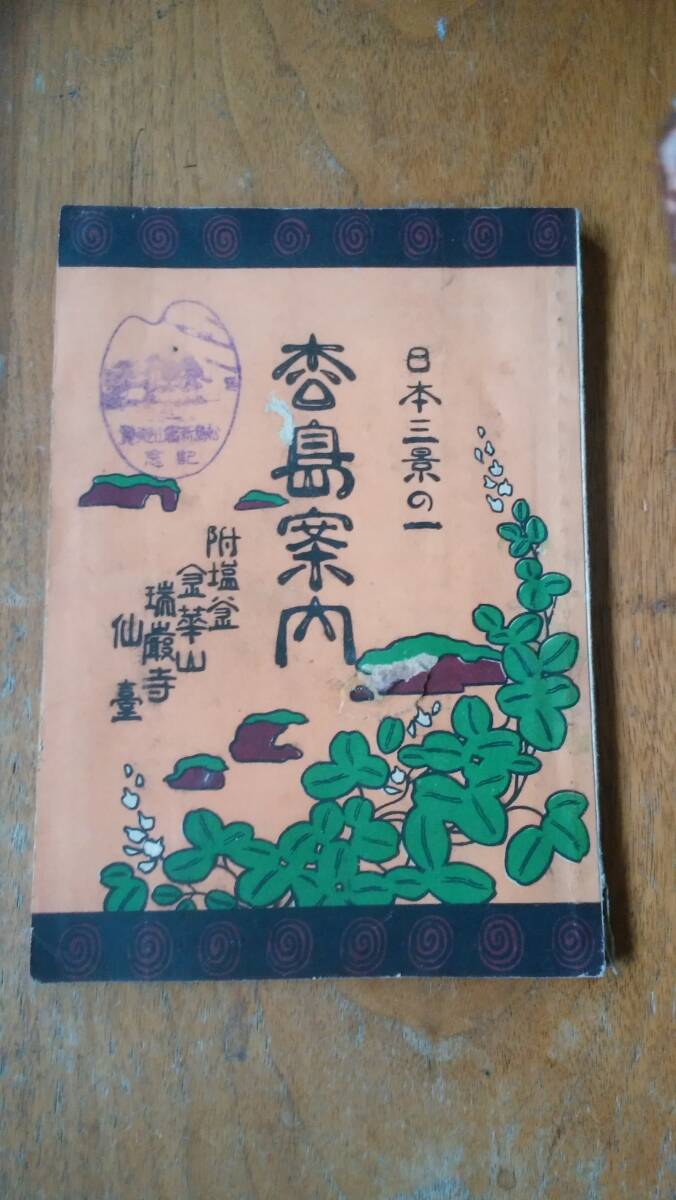 日本三景の一
枩島案内
附塩釜
金華山
瑞巖寺
仙臺
記念